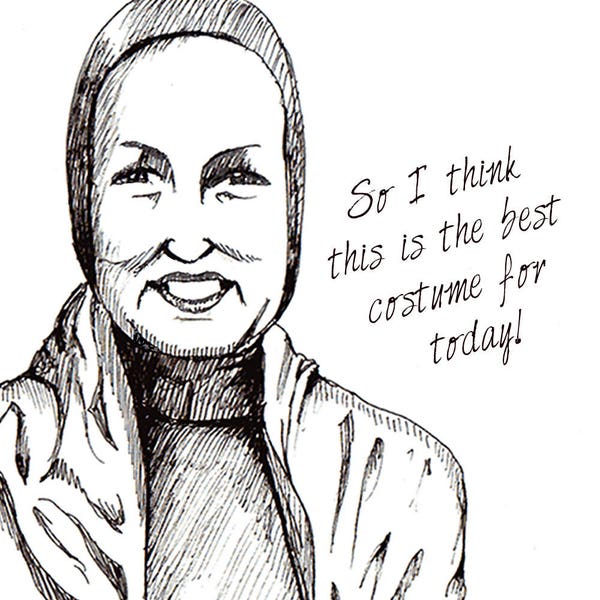 So I think
this is the best
costume for
today!